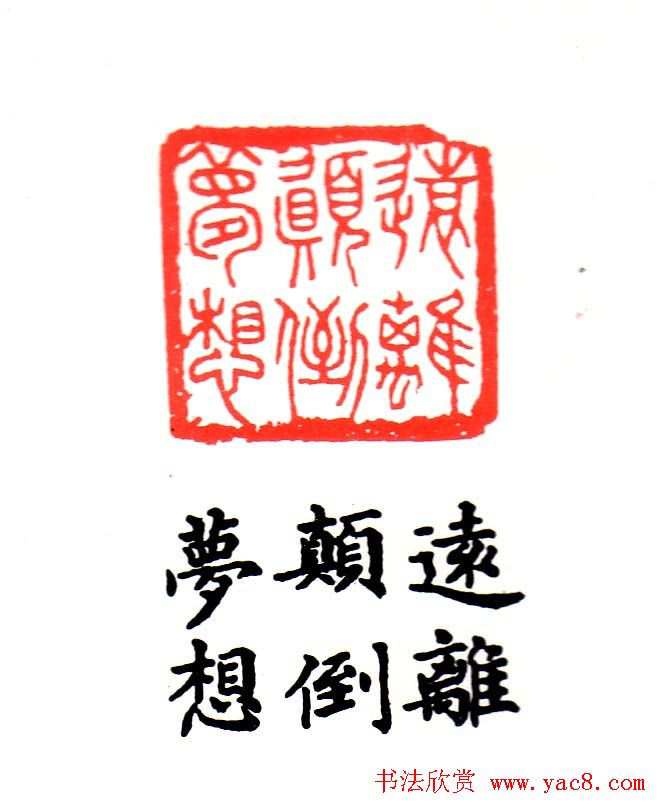 遠離
顛倒
夢想
遠離
顛倒
夢想
书法欣赏 www.yac8.com